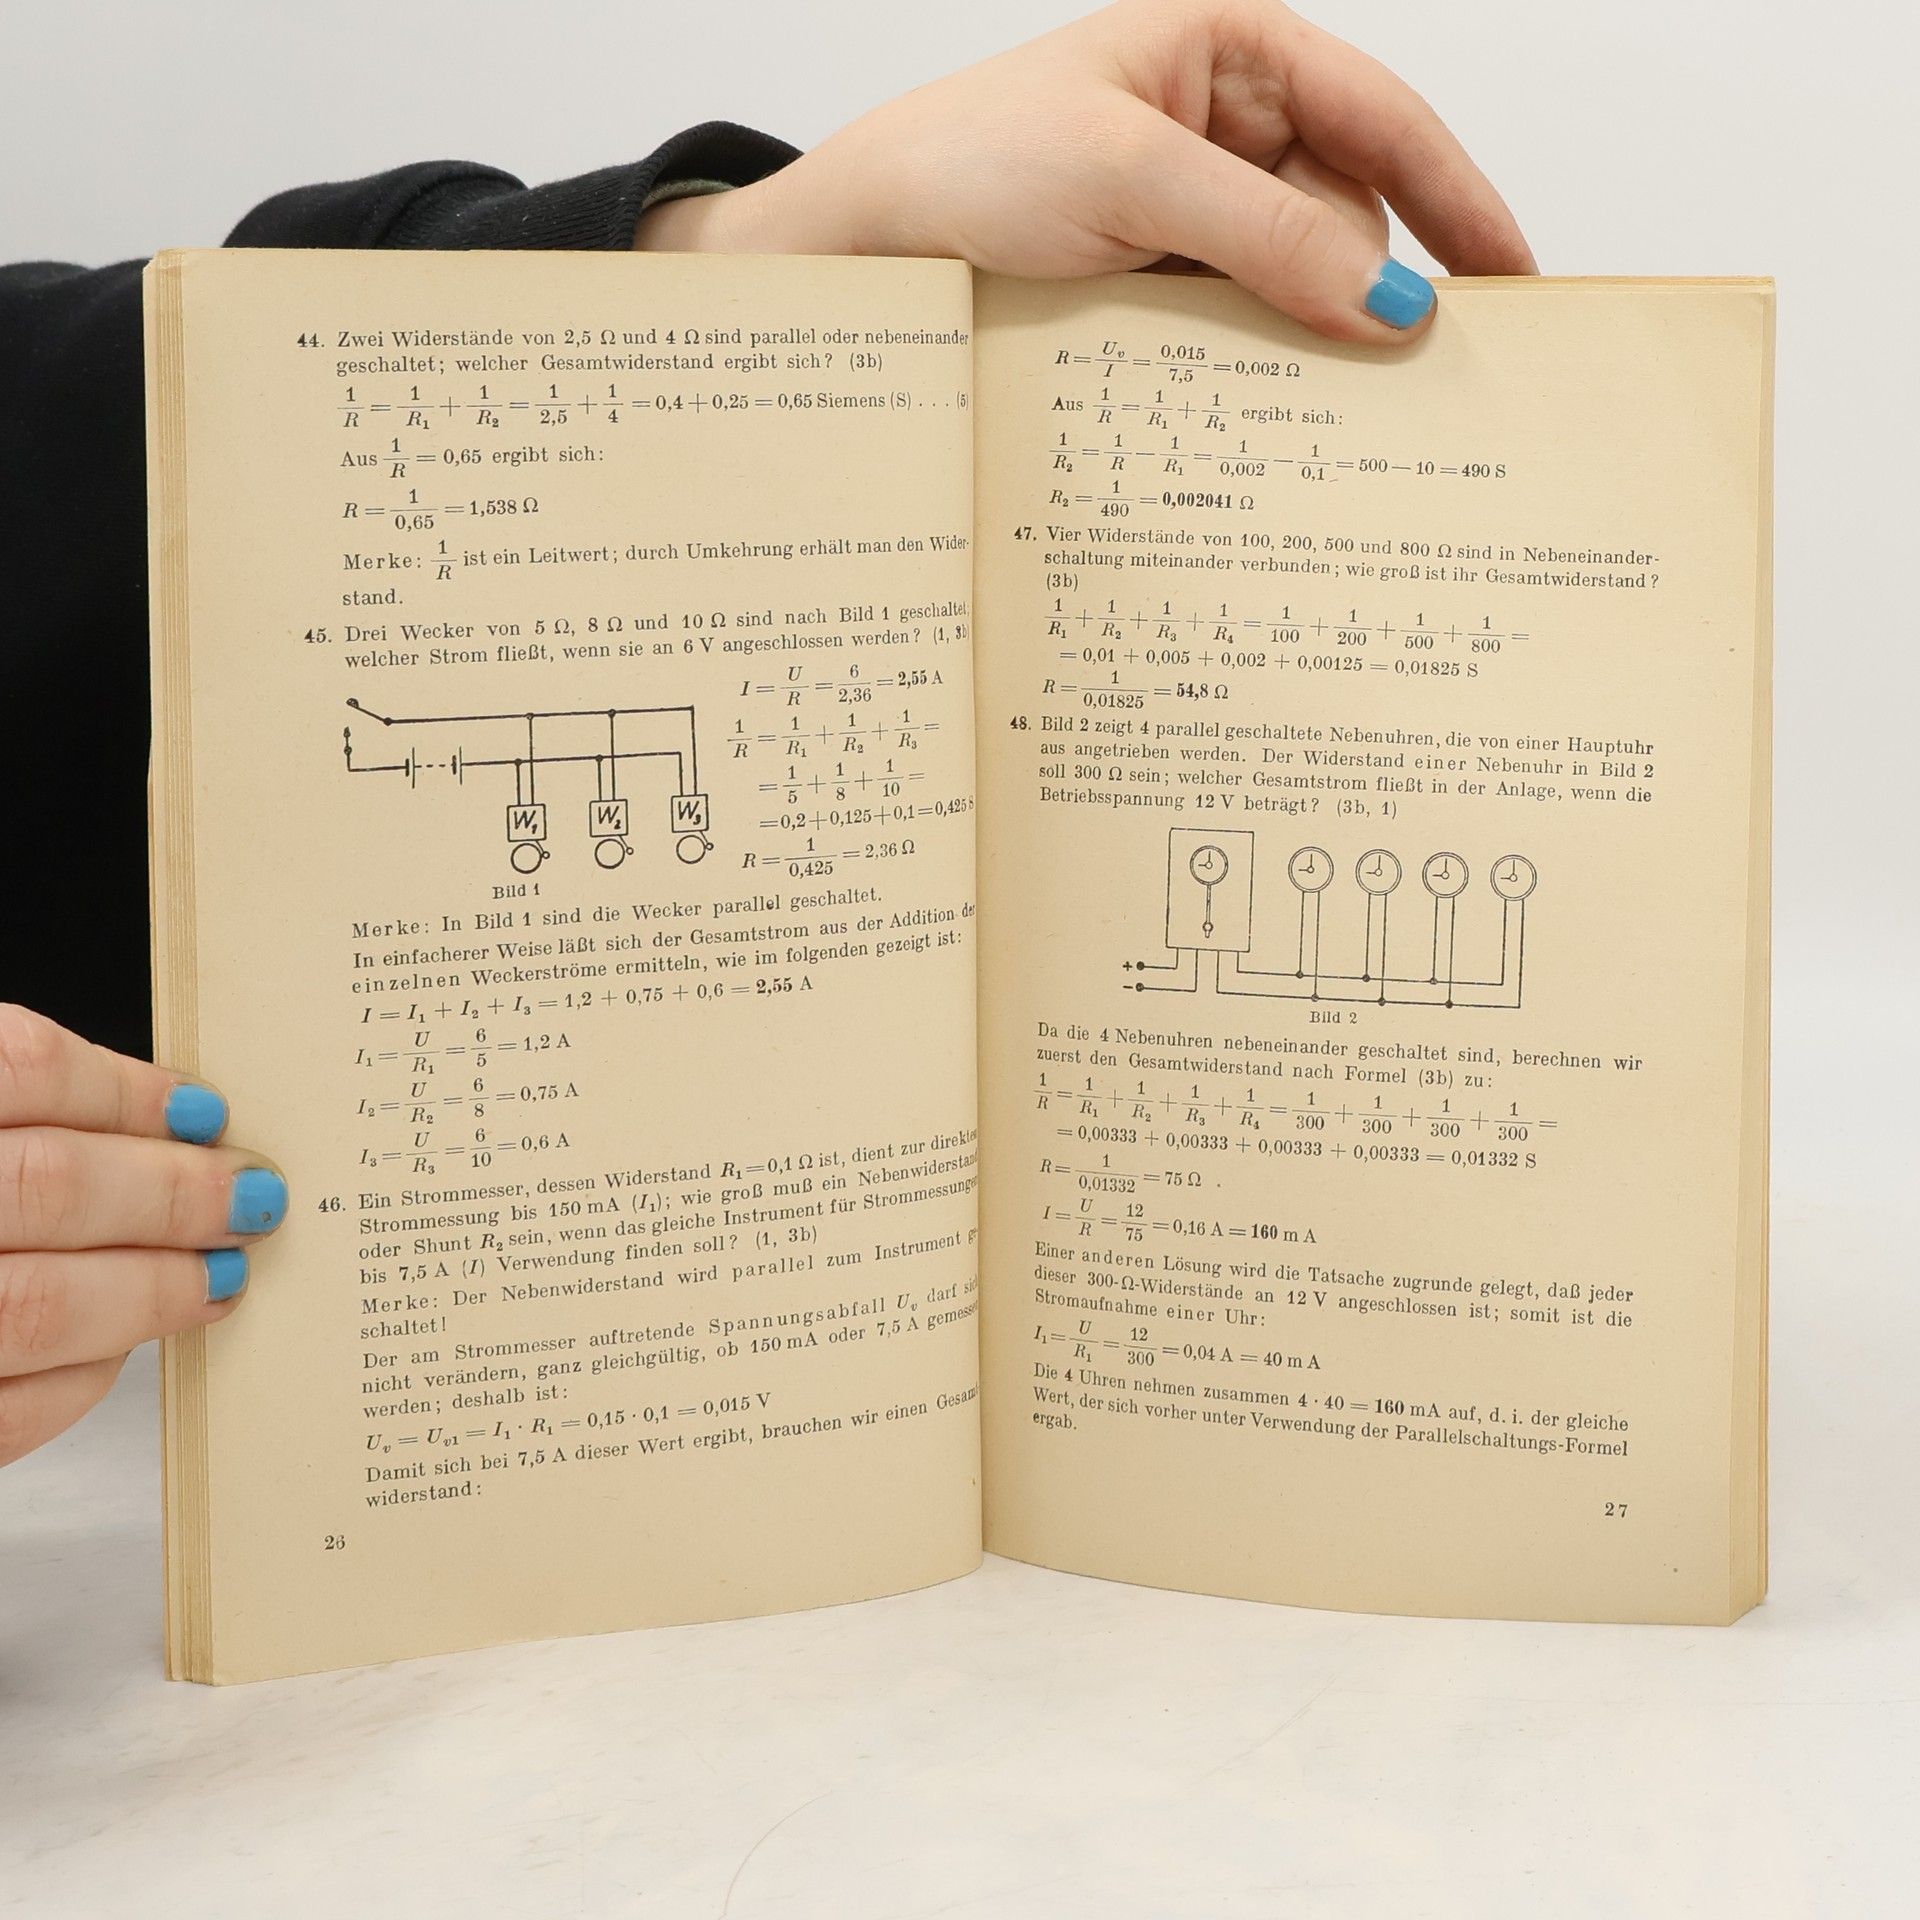 44. Zwei Widerstände von 2,5 Ω und 4 Ω sind parallel oder nebeneinander
geschaltet; welcher Gesamtwiderstand ergibt sich? (3b)
1/R = 1/R₁ + 1/R₂ = 1/2,5 + 1/4 = 0,4 + 0,25 = 0,65 Siemens (S) . . . (5)
Aus 1/R = 0,65 ergibt sich:
R = 1/0,65 = 1,538 Ω
Merke: 1/R ist ein Leitwert; durch Umkehrung erhält man den Wider-
stand.
45. Drei Wecker von 5 Ω, 8 Ω und 10 Ω sind nach Bild 1 geschaltet;
welcher Strom fließt, wenn sie an 6 V angeschlossen werden? (1, 3b)
I = U/R = 6/2,36 = 2,55 A
1/R = 1/R₁ + 1/R₂ + 1/R₃ =
= 1/5 + 1/8 + 1/10 =
= 0,2 + 0,125 + 0,1 = 0,425 S
R = 1/0,425 = 2,36 Ω
W₁ W₂ W₃
Bild 1
Merke: In Bild 1 sind die Wecker parallel geschaltet.
In einfacherer Weise läßt sich der Gesamtstrom aus der Addition der
einzelnen Weckerströme ermitteln, wie im folgenden gezeigt ist:
I = I₁ + I₂ + I₃ = 1,2 + 0,75 + 0,6 = 2,55 A
I₁ = U/R₁ = 6/5 = 1,2 A
I₂ = U/R₂ = 6/8 = 0,75 A
I₃ = U/R₃ = 6/10 = 0,6 A
46. Ein Strommesser, dessen Widerstand R₁ = 0,1 Ω ist, dient zur direkten
Strommessung bis 150 mA (I₁); wie groß muß ein Nebenwiderstand
oder Shunt R₂ sein, wenn das gleiche Instrument für Strommessungen
bis 7,5 A (I) Verwendung finden soll? (1, 3b)
Merke: Der Nebenwiderstand wird parallel zum Instrument ge-
schaltet!
Der am Strommesser auftretende Spannungsabfall Uᵥ darf sich
nicht verändern, ganz gleichgültig, ob 150 mA oder 7,5 A gemessen
werden; deshalb ist:
Uᵥ = Uᵥ₁ = I₁ · R₁ = 0,15 · 0,1 = 0,015 V
Damit sich bei 7,5 A dieser Wert ergibt, brauchen wir einen Gesamt
widerstand:
26
R = Uᵥ/I = 0,015/7,5 = 0,002 Ω
Aus 1/R = 1/R₁ + 1/R₂ ergibt sich:
1/R₂ = 1/R − 1/R₁ = 1/0,002 − 1/0,1 = 500 − 10 = 490 S
R₂ = 1/490 = 0,002041 Ω
47. Vier Widerstände von 100, 200, 500 und 800 Ω sind in Nebeneinander-
schaltung miteinander verbunden; wie groß ist ihr Gesamtwiderstand?
(3b)
1/R₁ + 1/R₂ + 1/R₃ + 1/R₄ = 1/100 + 1/200 + 1/500 + 1/800 =
= 0,01 + 0,005 + 0,002 + 0,00125 = 0,01825 S
R = 1/0,01825 = 54,8 Ω
48. Bild 2 zeigt 4 parallel geschaltete Nebenuhren, die von einer Hauptuhr
aus angetrieben werden. Der Widerstand einer Nebenuhr in Bild 2
soll 300 Ω sein; welcher Gesamtstrom fließt in der Anlage, wenn die
Betriebsspannung 12 V beträgt? (3b, 1)
+
−
Bild 2
Da die 4 Nebenuhren nebeneinander geschaltet sind, berechnen wir
zuerst den Gesamtwiderstand nach Formel (3b) zu:
1/R = 1/R₁ + 1/R₂ + 1/R₃ + 1/R₄ = 1/300 + 1/300 + 1/300 + 1/300 =
= 0,00333 + 0,00333 + 0,00333 + 0,00333 = 0,01332 S
R = 1/0,01332 = 75 Ω .
I = U/R = 12/75 = 0,16 A = 160 mA
Einer anderen Lösung wird die Tatsache zugrunde gelegt, daß jeder
dieser 300-Ω-Widerstände an 12 V angeschlossen ist; somit ist die
Stromaufnahme einer Uhr:
I₁ = U/R₁ = 12/300 = 0,04 A = 40 mA
Die 4 Uhren nehmen zusammen 4 · 40 = 160 mA auf, d. i. der gleiche
Wert, der sich vorher unter Verwendung der Parallelschaltungs-Formel
ergab.
27